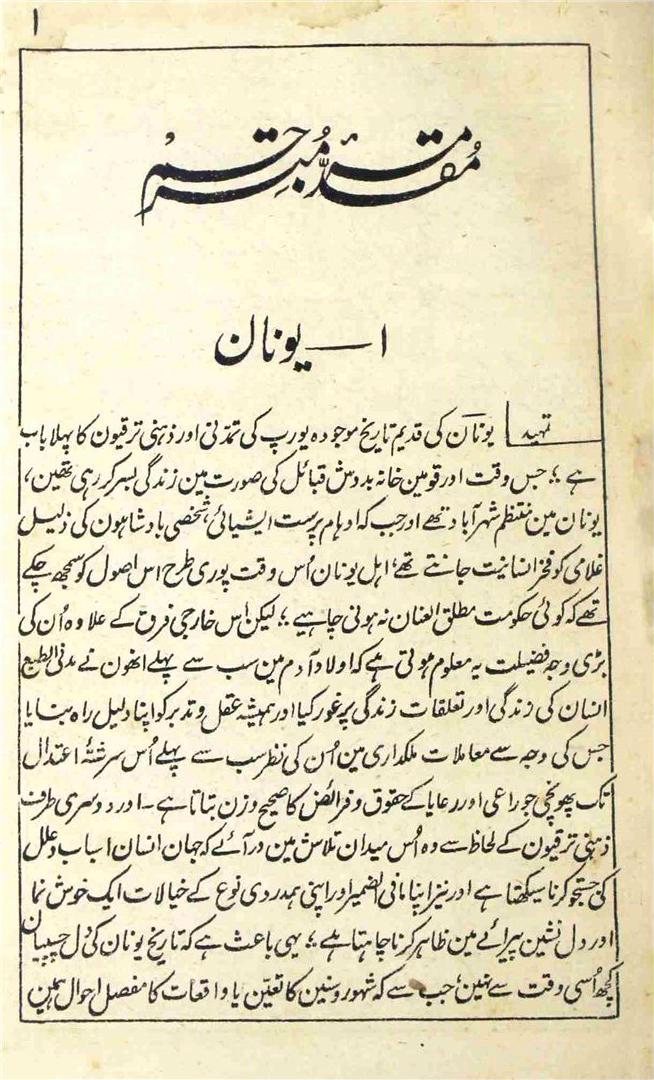 ۱
مقدمۂ مترجم
۱ــ یونان
تمہید یونان کی قدیم تاریخ موجودہ یورپ کی تمدّنی اور ذہنی ترقیون کا پہلا باب
ہے ؛؛ جس وقت اور قومین خانہ بدوش قبائل کی صورت مین زندگی بسر کر رہی تھین،
یونان مین منتظم شہر آباد تھے اور جب کہ اوہام پرست ایشیائی، شخصی بادشاہون کی ذلیل
غلامی کو فخر انسانیت جانتے تھے، اہل یونان اُس وقت پوری طرح اس اصول کو سمجھ چکے
تھے کہ کوئی حکومت مطلق العنان نہ ہونی چاہیے ؛؛ لیکن اس خارجی فرق کے علاوہ اُن کی
بڑی وجہ فضیلت یہ معلوم ہوتی ہے کہ اولاد آدم مین سب سے پہلے انھون نے مدنی الطبع
انسان کی زندگی اور تعلقات زندگی پر غور کیا اور ہمیشہ عقل و تدبر کو اپنا دلیل راہ بنایا
جس کی وجہ سے معاملات ملکداری مین اُن کی نظر سب سے پہلے اُس سررشتۂ اعتدال
تک پھونچی جو راعی اور رعایا کے حقوق و فرائض کا صحیح وزن بتاتا ہے ۔ اور دوسری طرف
ذہنی ترقیون کے لحاظ سے وہ اُس میدان تلاش مین در آئے کہ جہان انسان اسباب و علل
کی جستجو کرنا سیکھتا ہے اور نیز اپنا مافی الضمیر اور اپنی ہمدردی نوع کے خیالات ایک خوش نما
اور دل نشین پیرائے مین ظاہر کرنا چاہتا ہے ؛؛ یہی باعث ہے کہ تاریخ یونان کی دل چسپیان
کچھ اُسی وقت سے نہین، جب سے کہ شہور و سنین کا تعیّن یا واقعات کا مفصل احوال ہمین